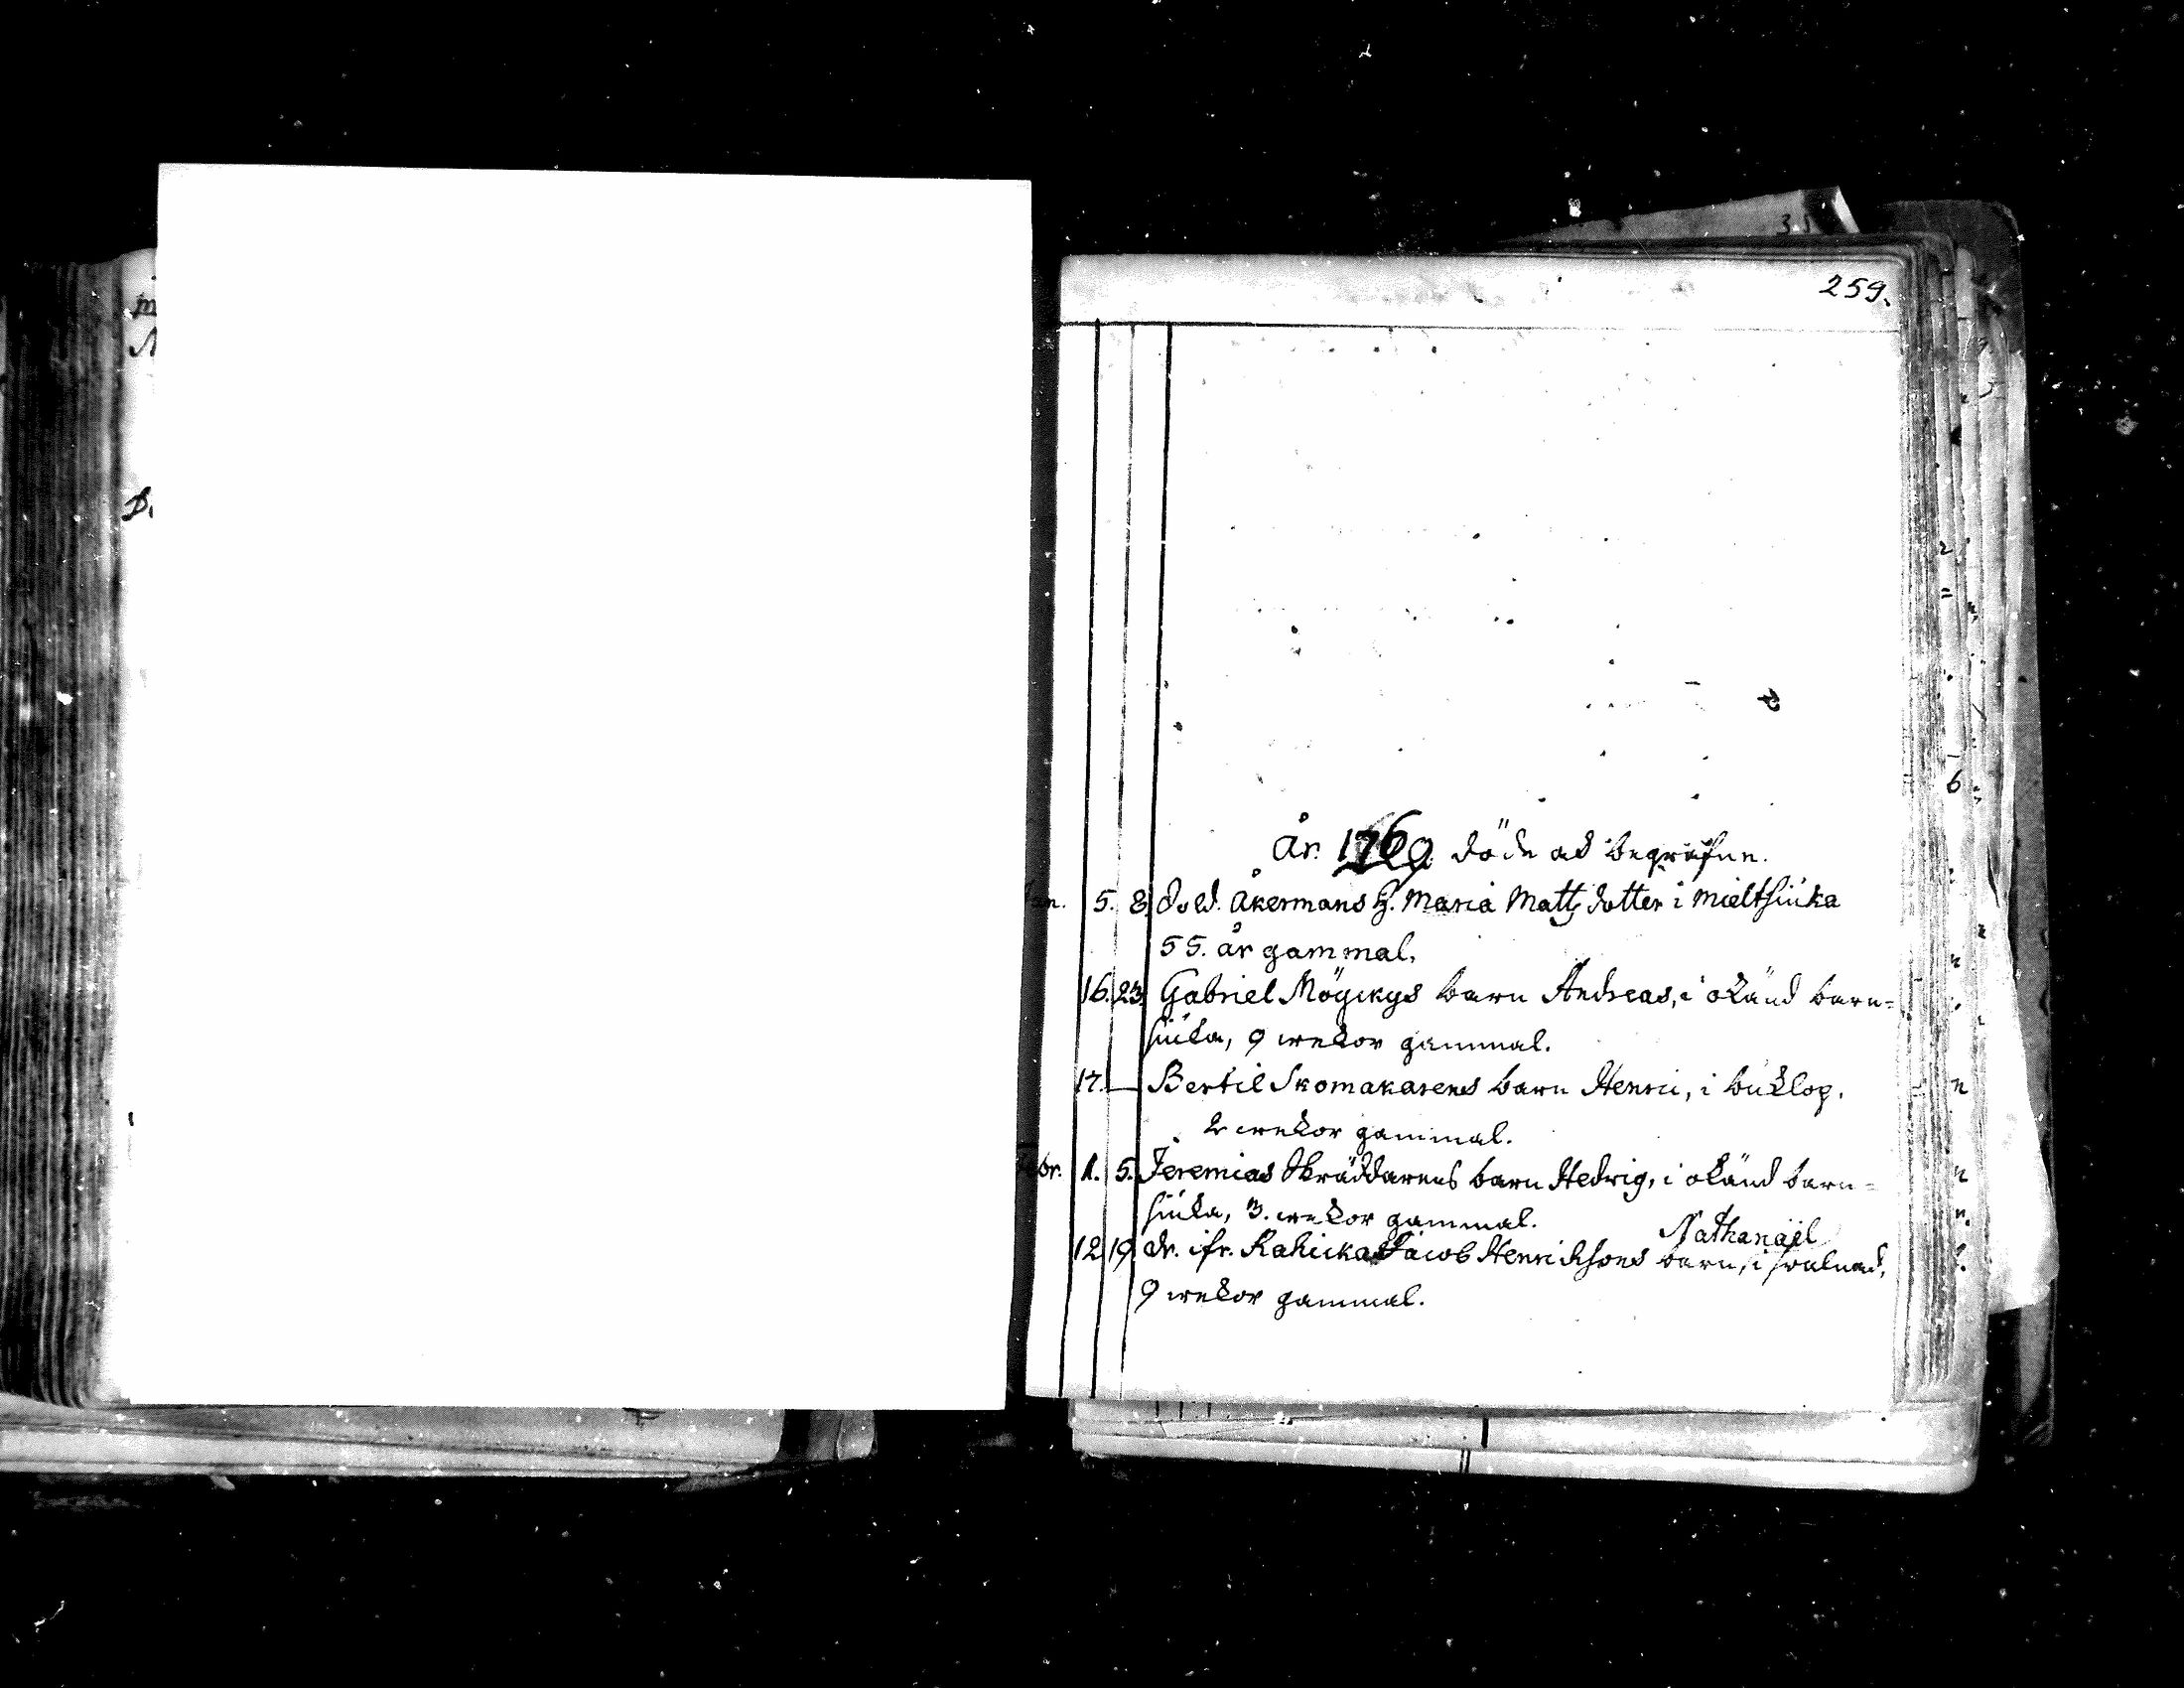 259.
År. 1769 döde ock begrafne.
Jan. 5. 8. Sold. Åkermans H. Maria Mattsdotter i mieltsiuka
55. år gammal.
16. 23. Gabriel Möyckys barn Andreas, i okänd barn-
siuka, 9 wekor gammal.
17. — Bertil Skomakarens barn Henric, i buklop.
2 wekor gammal.
Febr. 1. 5. Jeremias Skräddarens barn Hedvig, i okänd barn-
siuka, 3. wekor gammal.
Nathanaël
12 19 dr. ifr. Jacob Henrichsons barn, i swalnad,
9 wekor gammal.